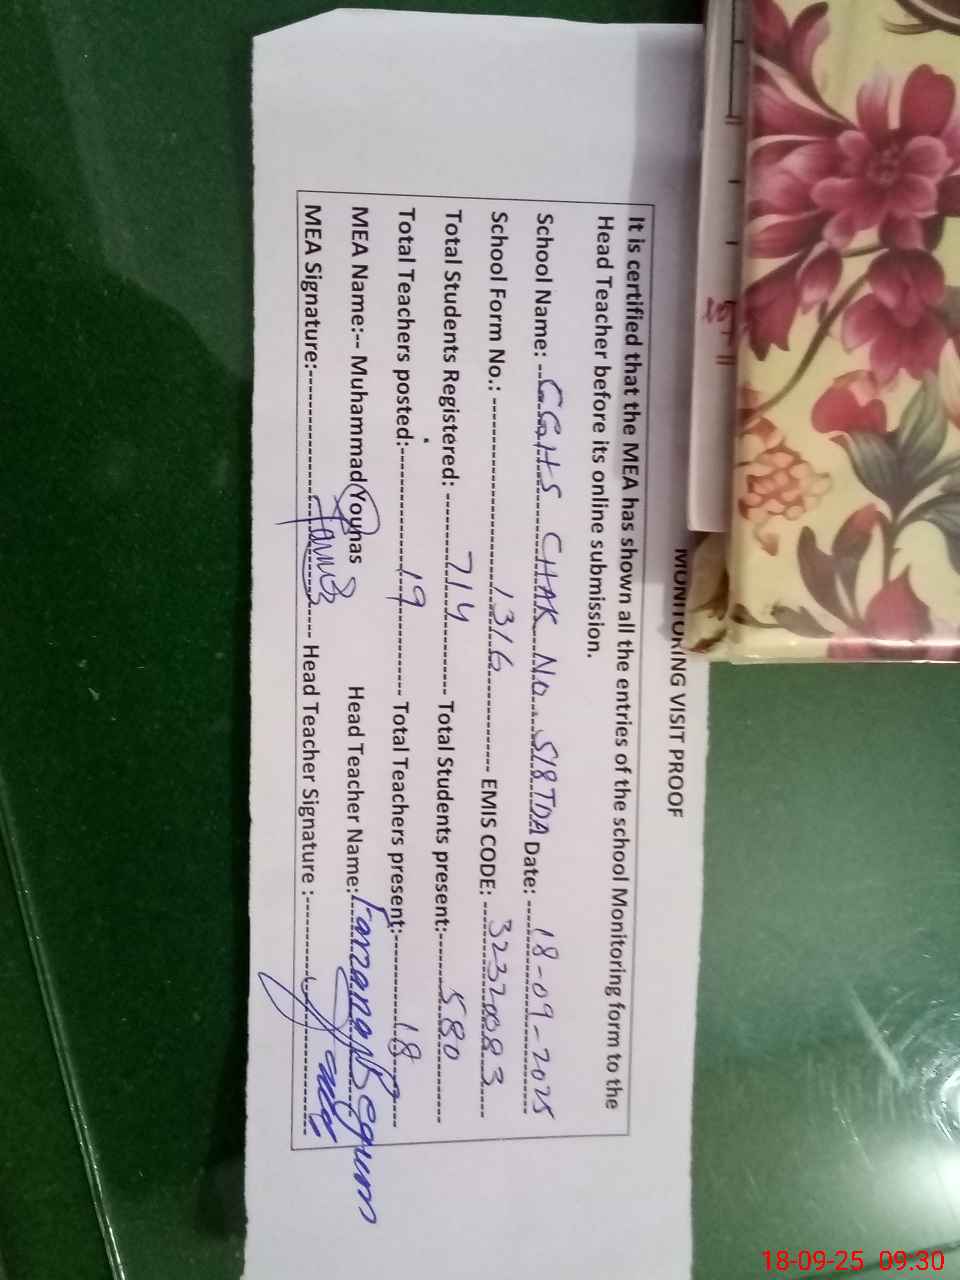 MONITORING VISIT PROOF
It is certified that the MEA has shown all the entries of the school Monitoring form to the
Head Teacher before its online submission.
School Name: --GGHS CHAK No 518 TDA Date: 18-09-2025
School Form No.: 1316 EMIS CODE: 32320083
Total Students Registered: 714 Total Students present: 580
Total Teachers posted: 19 Total Teachers present: 18
MEA Name:-- Muhammad Younas Head Teacher Name: Farzana Begum
MEA Signature: Head Teacher Signature :
18-09-25 09.30